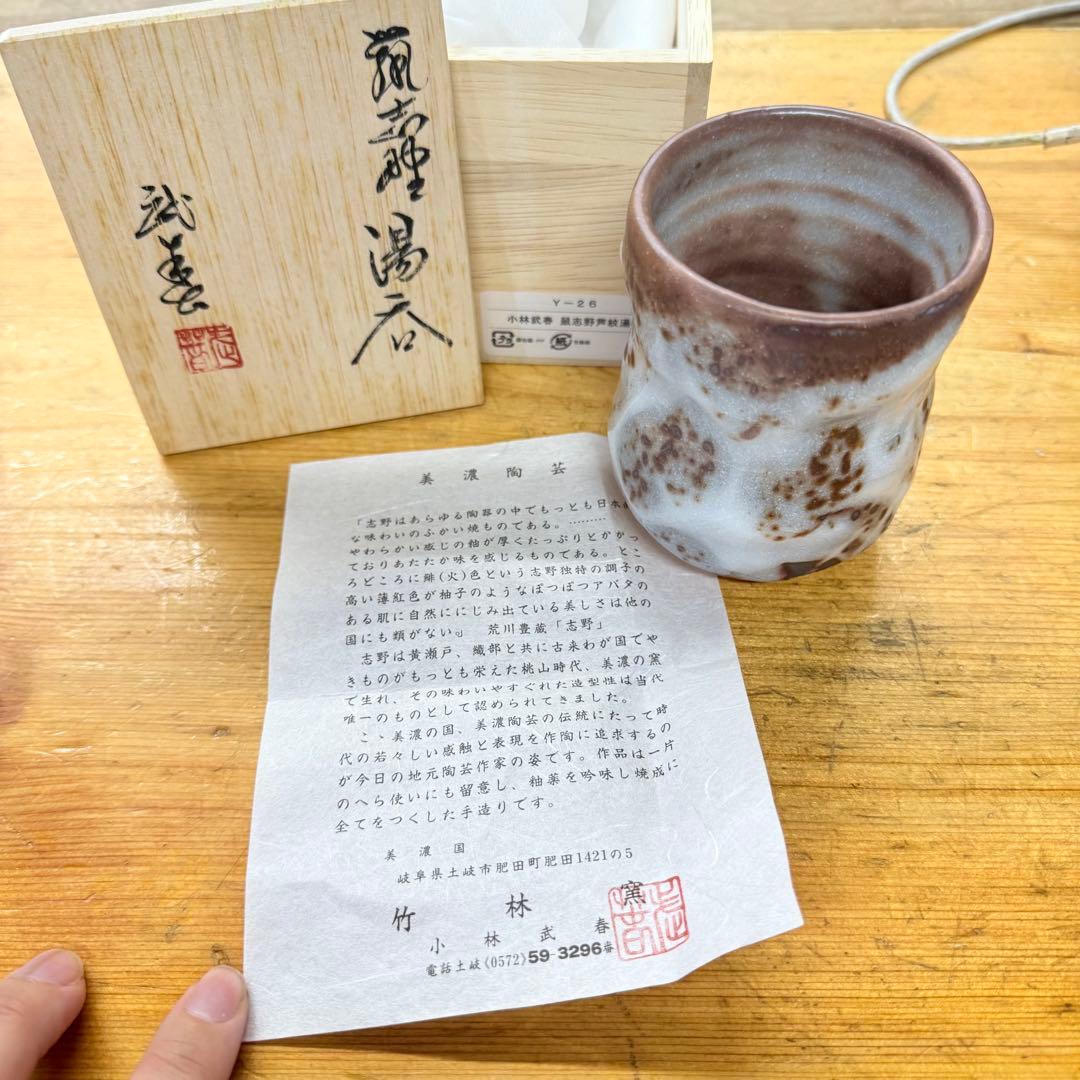 鼠志野
湯呑
武春
Y－26
小林武春 鼠志野芦紋湯
紙
美濃陶芸
「志野はあらゆる陶器の中でもっとも日本
な味わいのふかい焼ものである。………
やわらかい感じの釉が厚くたっぷりとかかっ
ておりあたたか味を感じるものである。とこ
ろどころに緋(火)色という志野独特の調子の
高い薄紅色が柚子のようなぽつぽつアバタの
ある肌に自然ににじみ出ている美しさは他の
国にも類がない。」 荒川豊蔵「志野」
志野は黄瀬戸、織部と共に古来わが国でや
きものがもっとも栄えた桃山時代、美濃の窯
で生れ、その味わいやすぐれた造型性は当代
唯一のものとして認められてきました。
こゝ美濃の国、美濃陶芸の伝統にたって時
代の若々しい感触と表現を作陶に追求するの
が今日の地元陶芸作家の姿です。作品は一片
のへら使いにも留意し、釉薬を吟味し焼成に
全てをつくした手造りです。
美濃国
岐阜県土岐市肥田町肥田1421の5
竹林窯
小林武春
電話土岐《0572》59-3296番